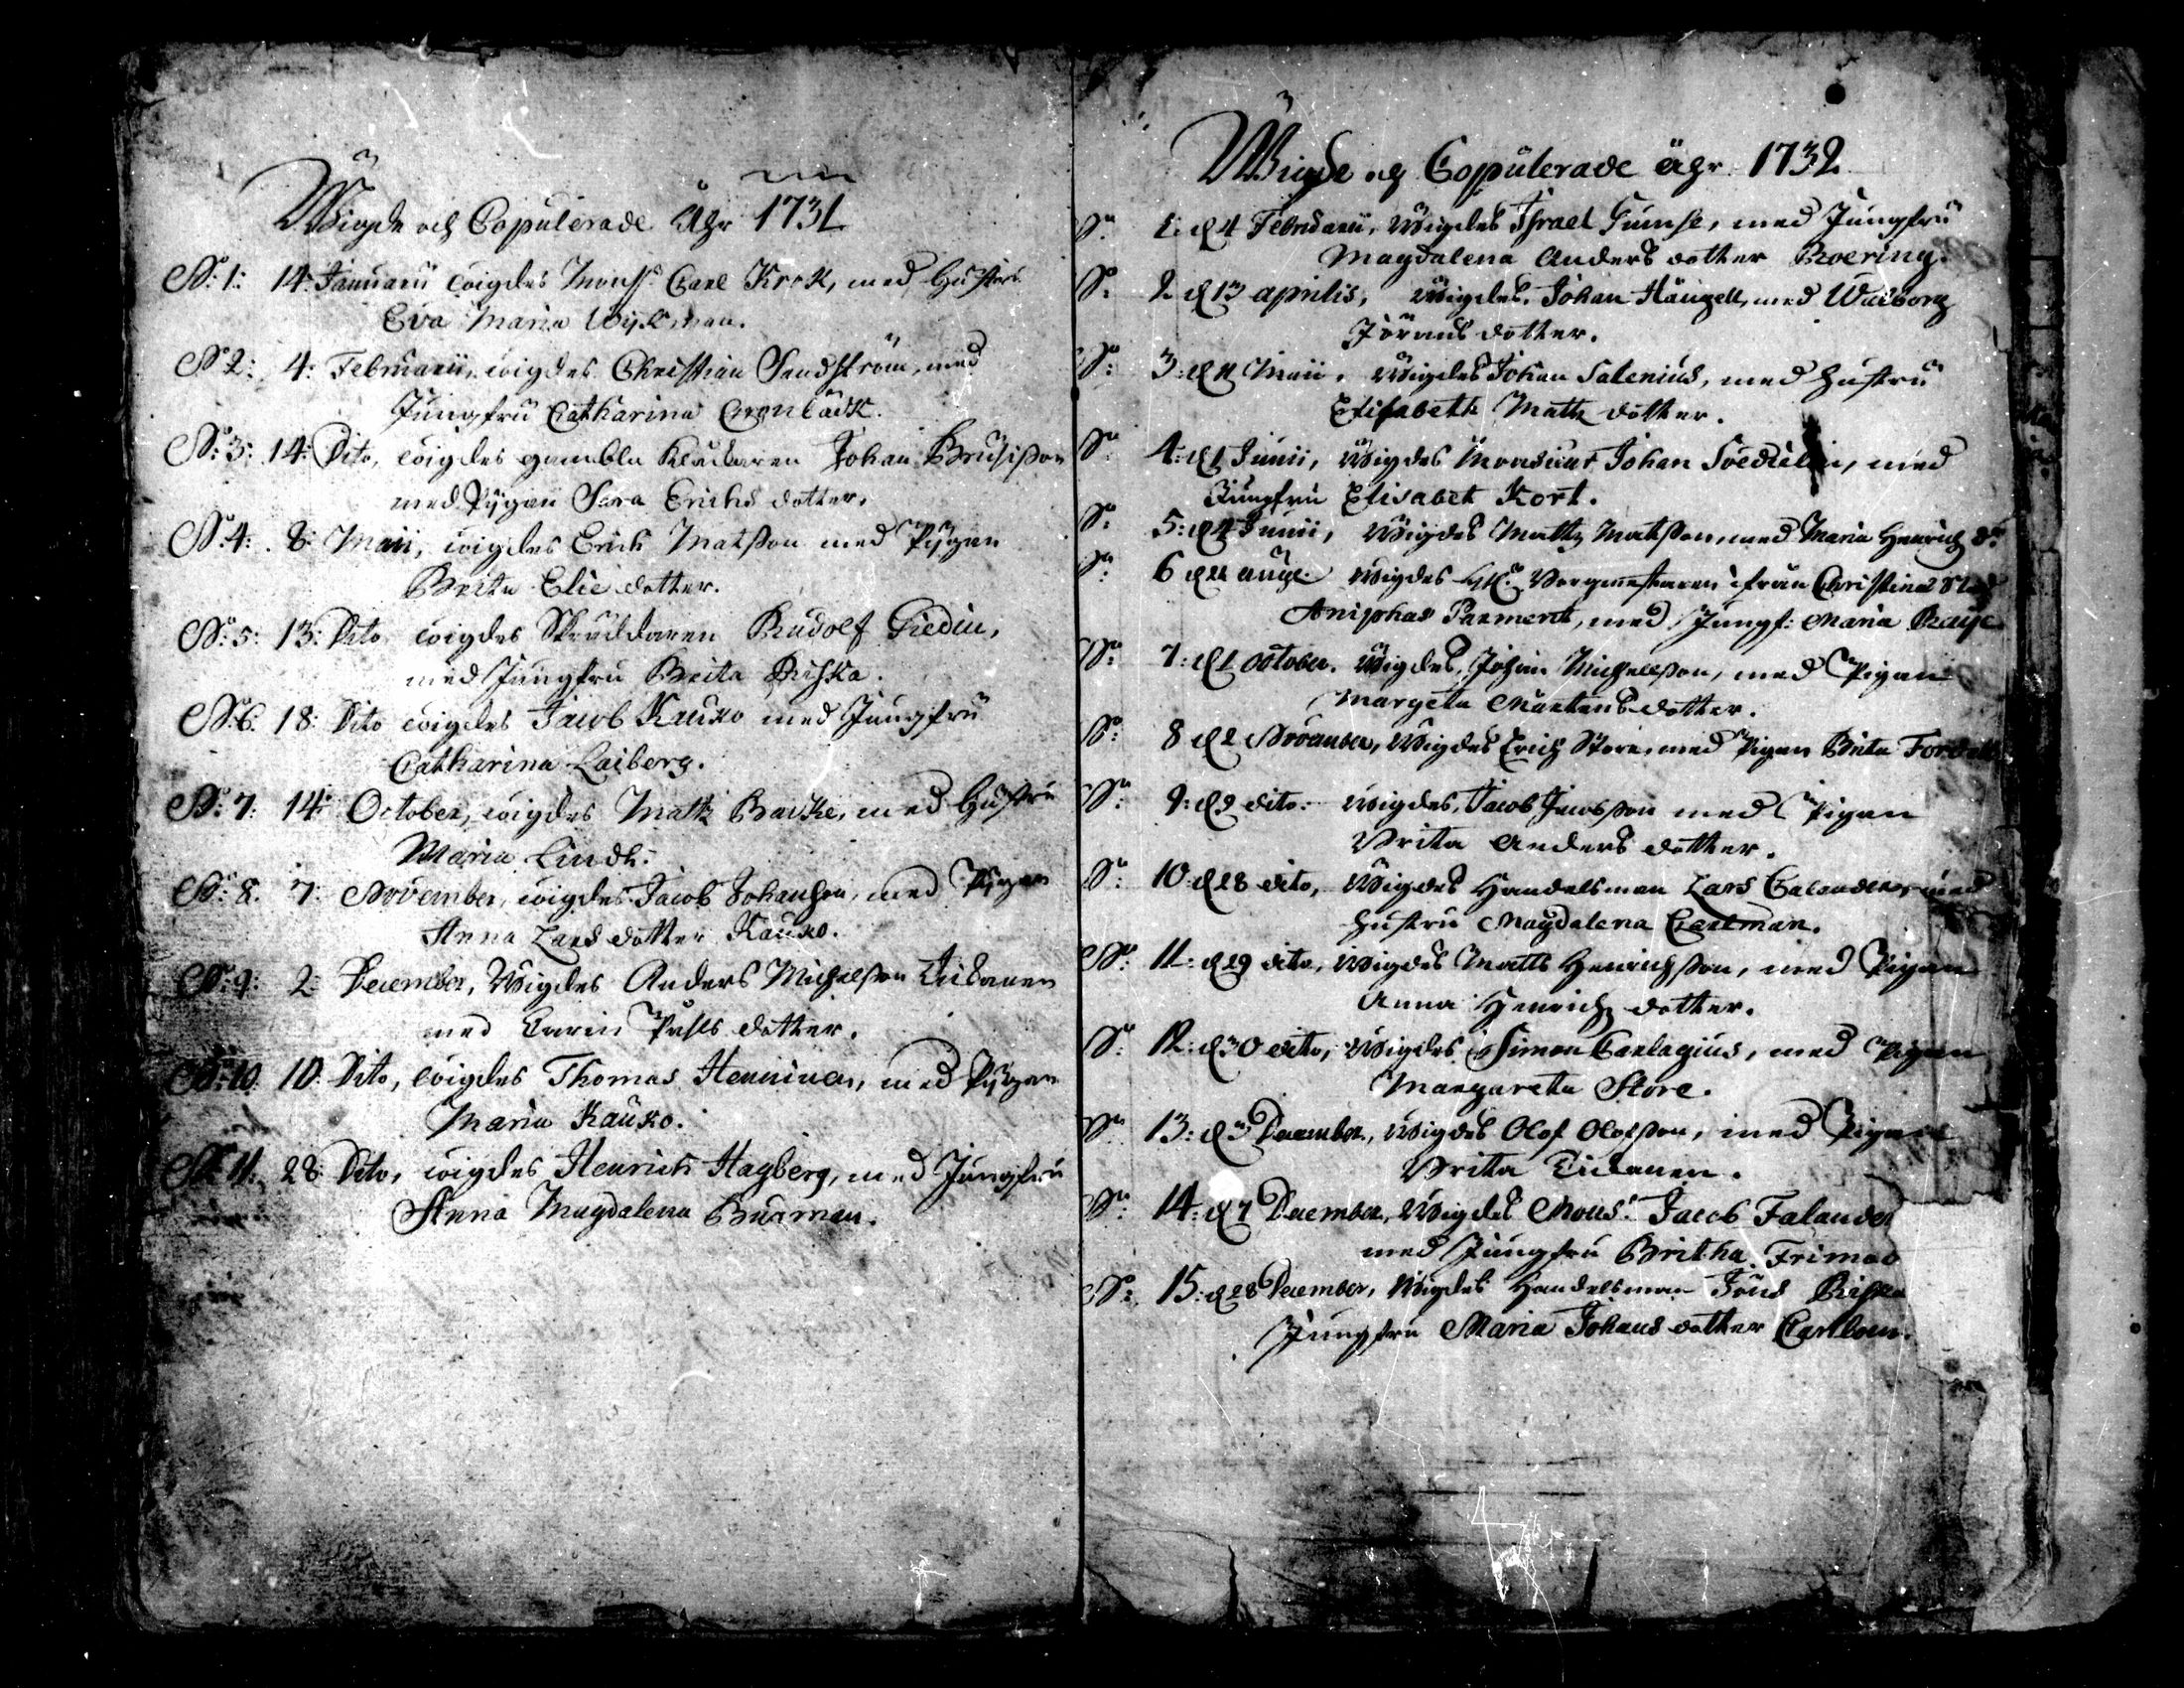 Wigde och Copulerade Åhr 1731
N:o 1: 14 Januarii wigdes Mons:r Carl Krok, med Hustru
Eva Maria Wijkman.
N:o 2: 4: Februarii, wigdes Christian Sandström, med
Jungfru Catharina Gronbäck.
N:o 3: 14: Dito, wigdes gambla Klåckaren Johan
med Pijgan Sara Erichs dotter.
N:o 4: 8: Maii, wigdes Erich Matsson med Pijgan
Brita Elië dotter.
N:o 5: 13: Dito wigdes Skräddaren Rudolf
med Jungfru Brita Riska.
N:o 6: 18: Dito wigdes Jacob Kauko med Jungfru
Catharina Laiberg.
N:o 7: 14: October, wigdes Matz Backe, med Hustru
Maria Lindh.
N:o 8: 7: November, wigdes Jacob Johansson, med Pijgan
Anna Lars dotter Kauko.
N:o 9: 2: December, Wigdes Anders Michelsson
med Carin Påhls dotter.
N:o 10: 10: Dito, wigdes Thomas, med Pijgan
Maria Kauko.
N:o 11: 28: Dito, wigdes Henrich Hagberg, med Jungfru
Anna Magdalena Burman.
Wigde och Copulerade åhr 1732
N:o 1: d 4 Februarii, Wigdes Israel Gumse, med Jungfru
Magdalena Anders dotter Roering.
N:o 2: d 13 aprilis, Wigdes, Johan, med Walborg
Jörans dotter.
N:o 3: Maii, Wigdes Johan Salenius, med Hustru
Elisabeth Matz dotter.
N:o 4: d 1 Junii, Wigdes Monsieur Johan, med
Jungfru Elisabet Kort.
N:o 5: d 4 Junii, Wigdes Mattz Matsson, med Maria Henrichz d:r
N:o 6 Wigdes H:r Borgmestaren ifrån Christinæ Stad
med Jungf: Maria
N:o 7: d 1 October, Wigdes, Johan Michelsson, med Pigan
Margeta Mårtens dotter.
N:o 8 d 2 November, Wigdes Erich Store, med Pigan Brita
N:o 9: d 9 dito: Wigdes, Jacob Jacobsson med Pigan
Brita Anders dotter.
N:o 10: d 28 dito, Wigdes Handelsman Lars, med
Hustru Magdalena Carlman.
N:o 11: d 29 dito, Wigdes Matts Henrichsson, med Pigan
Anna Henrichz dotter.
N:o 12: d 30 dito, Wigdes Simon Carlagius, med Pigan
Margareta Store.
N:o 13: d 3 December, Wigdes Olof Olofsson, med Pigan
Britta
N:o 14: d 7 December, Wigdes Mons:r Jacob Falander
med Jungfru Britha
N:o 15: d 28 December, Wigdes Handelsman
Jungfru Maria Johans dotter